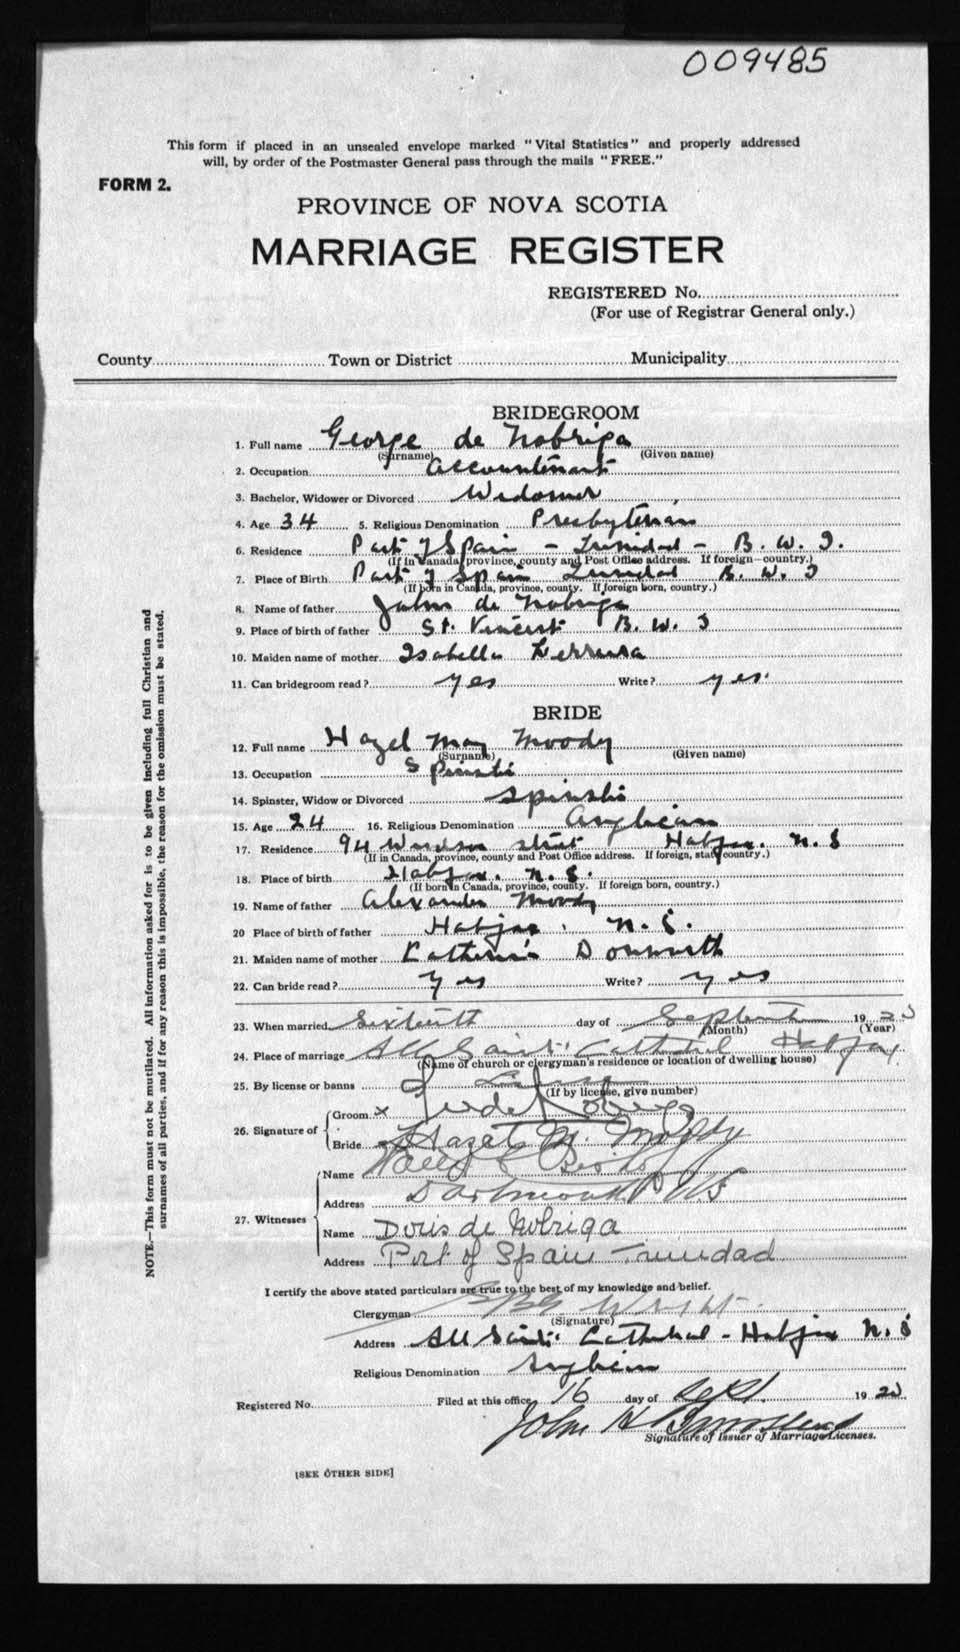 009485
This form if placed in an unsealed envelope marked "Vital Statistics" and properly addressed
will, by order of the Postmaster General pass through the mails "FREE."
FORM 2.
PROVINCE OF NOVA SCOTIA
MARRIAGE REGISTER
REGISTERED No.
(For use of Registrar General only.)
County Town or District Municipality
BRIDEGROOM
1. Full name George de Nobriga
(Surname) (Given name)
2. Occupation Accountant
3. Bachelor, Widower or Divorced Widower
4. Age 34 5. Religious Denomination Presbyterian
6. Residence Port of Spain - Trinidad - B. W. I.
(If in Canada, province, county and Post Office address. If foreign—country.)
7. Place of Birth Port of Spain Trinidad B. W. I
(If born in Canada, province, county. If foreign born, country.)
8. Name of father John de Nobriga
9. Place of birth of father St. Vincent B. W. I
10. Maiden name of mother Isabella
11. Can bridegroom read? yes Write? yes.
BRIDE
12. Full name Hazel May Moody
(Surname) (Given name)
13. Occupation Spinster
14. Spinster, Widow or Divorced Spinster
15. Age 24 16. Religious Denomination Anglican
17. Residence 94 Windsor street Halifax. N. S
(If in Canada, province, county and Post Office address. If foreign, state country.)
18. Place of birth Halifax. N. S.
(If born in Canada, province, county. If foreign born, country.)
19. Name of father Alexander Moody
20 Place of birth of father Halifax. N. S.
21. Maiden name of mother Catherine
22. Can bride read? yes Write? yes
23. When married Sixteenth day of September 19
(Month) (Year)
24. Place of marriage All Saints Cathedral Halifax.
(Name of church or clergyman's residence or location of dwelling house)
25. By license or banns License
(If by license, give number)
26. Signature of
Groom x de Nobriga
Bride Hazel M. Moody
27. Witnesses
Name
Address Dartmouth NS
Name Doris de Nobriga
Address Port of Spain Trinidad
I certify the above stated particulars are true to the best of my knowledge and belief.
Clergyman Wright
(Signature)
Address All Saints Cathedral - Halifax N. S
Religious Denomination Anglican
Registered No. Filed at this office 16 day of Sept. 19
John H
Signature of Issuer of Marriage Licenses.
[SEE OTHER SIDE]
NOTE.—This form must not be mutilated. All information asked for is to be given including full Christian and
surnames of all parties, and if for any reason this is impossible, the reason for the omission must be stated.